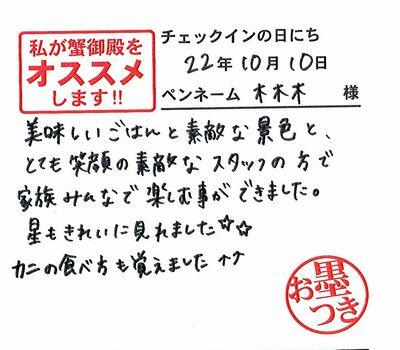 私が蟹御殿を
オススメ
します!!
チェックインの日にち
22年10月10日
ペンネーム 木木木 様
美味しいごはんと素敵な景色と、
とても笑顔の素敵なスタッフの方で
家族みんなで楽しむ事ができました。
星もきれいに見れました☆☆
カニの食べ方も覚えました↑↑
お墨つき